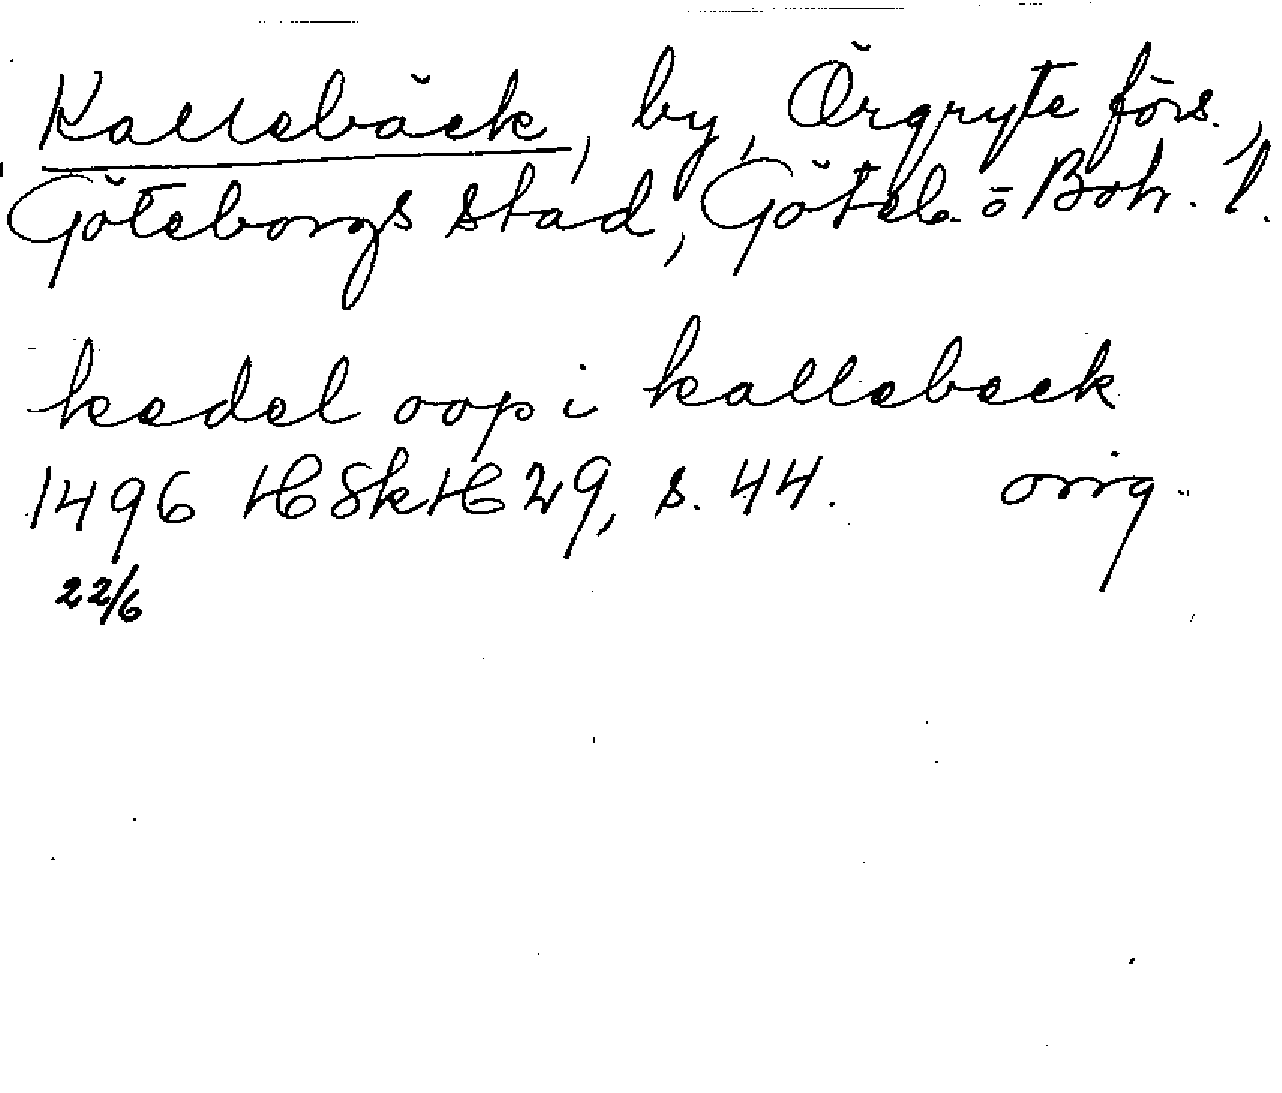 Kallebäck, by, Örgryte förs.,
Göteborgs stad, Göteb. o Boh. l.
kedel oop i kallebeck
1496 HSkH 29, s. 44. orig.
22/6